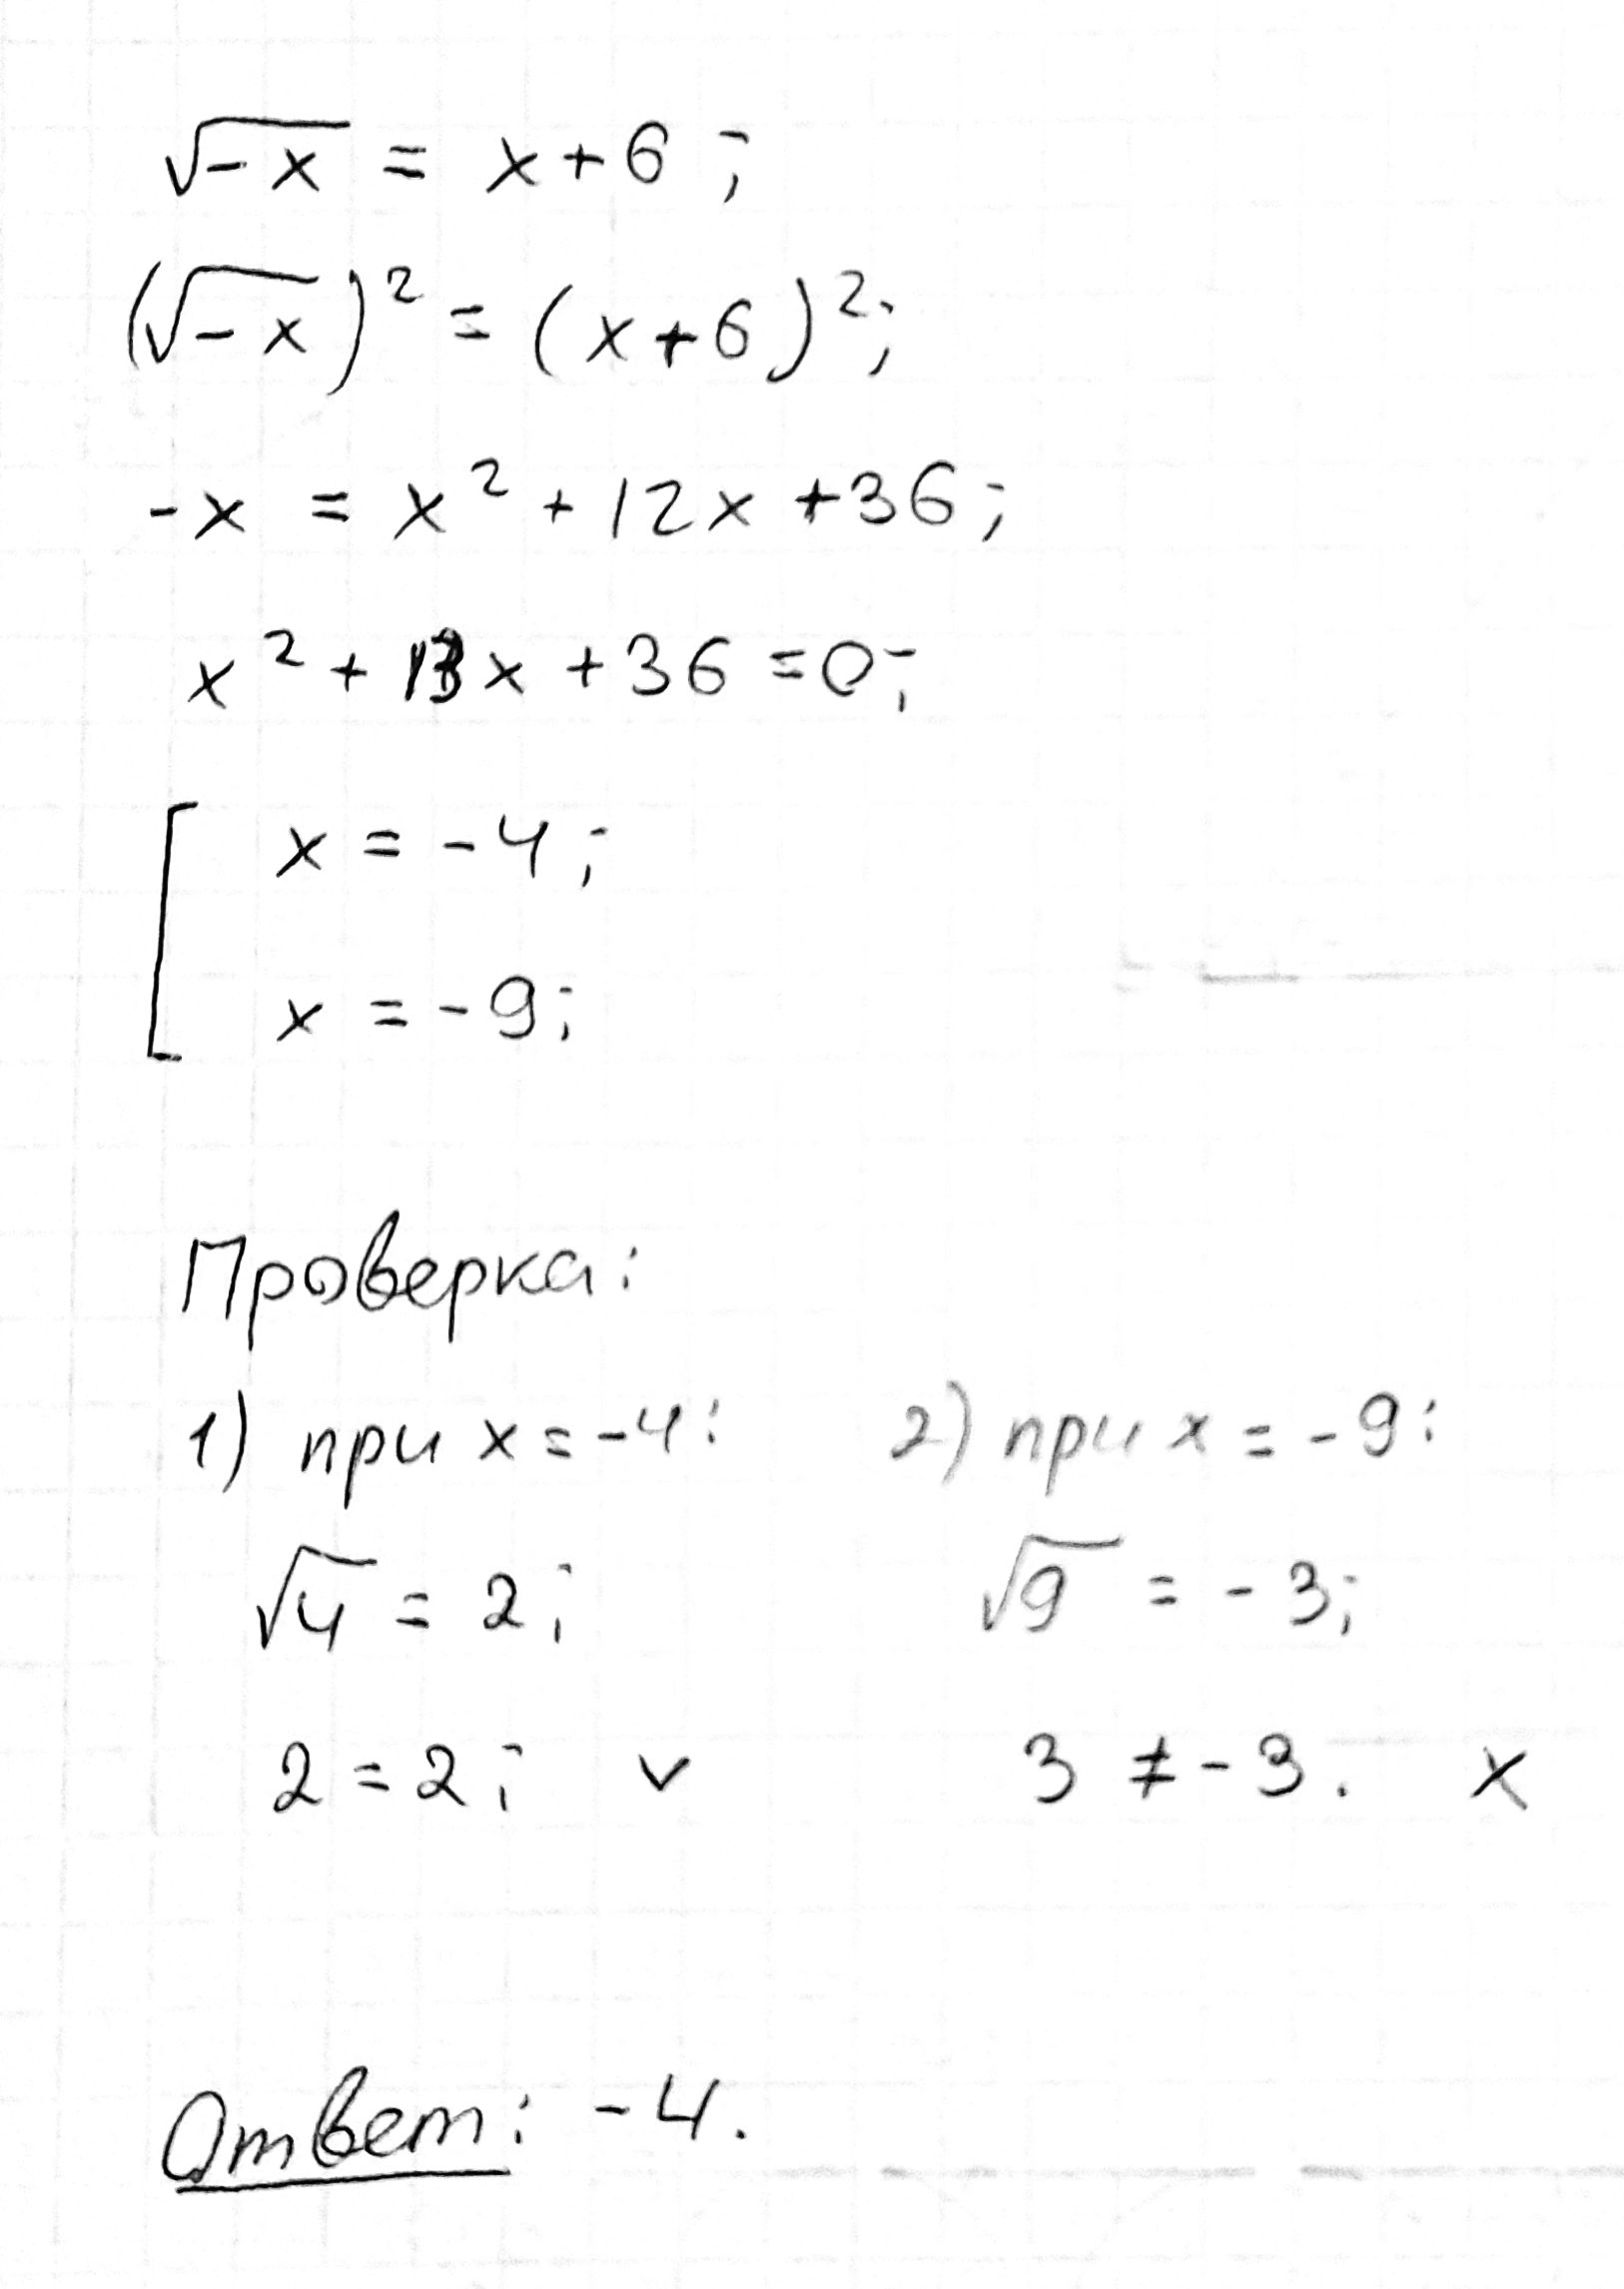 √-x = x+6;
(√-x)² = (x+6)²;
-x = x² + 12x + 36;
x² + 13x + 36 = 0;
x = -4;
x = -9;
Проверка:
1) при x = -4:
√4 = 2;
2 = 2; v
2) при x = -9:
√9 = -3;
3 ≠ -3. x
Ответ: -4.